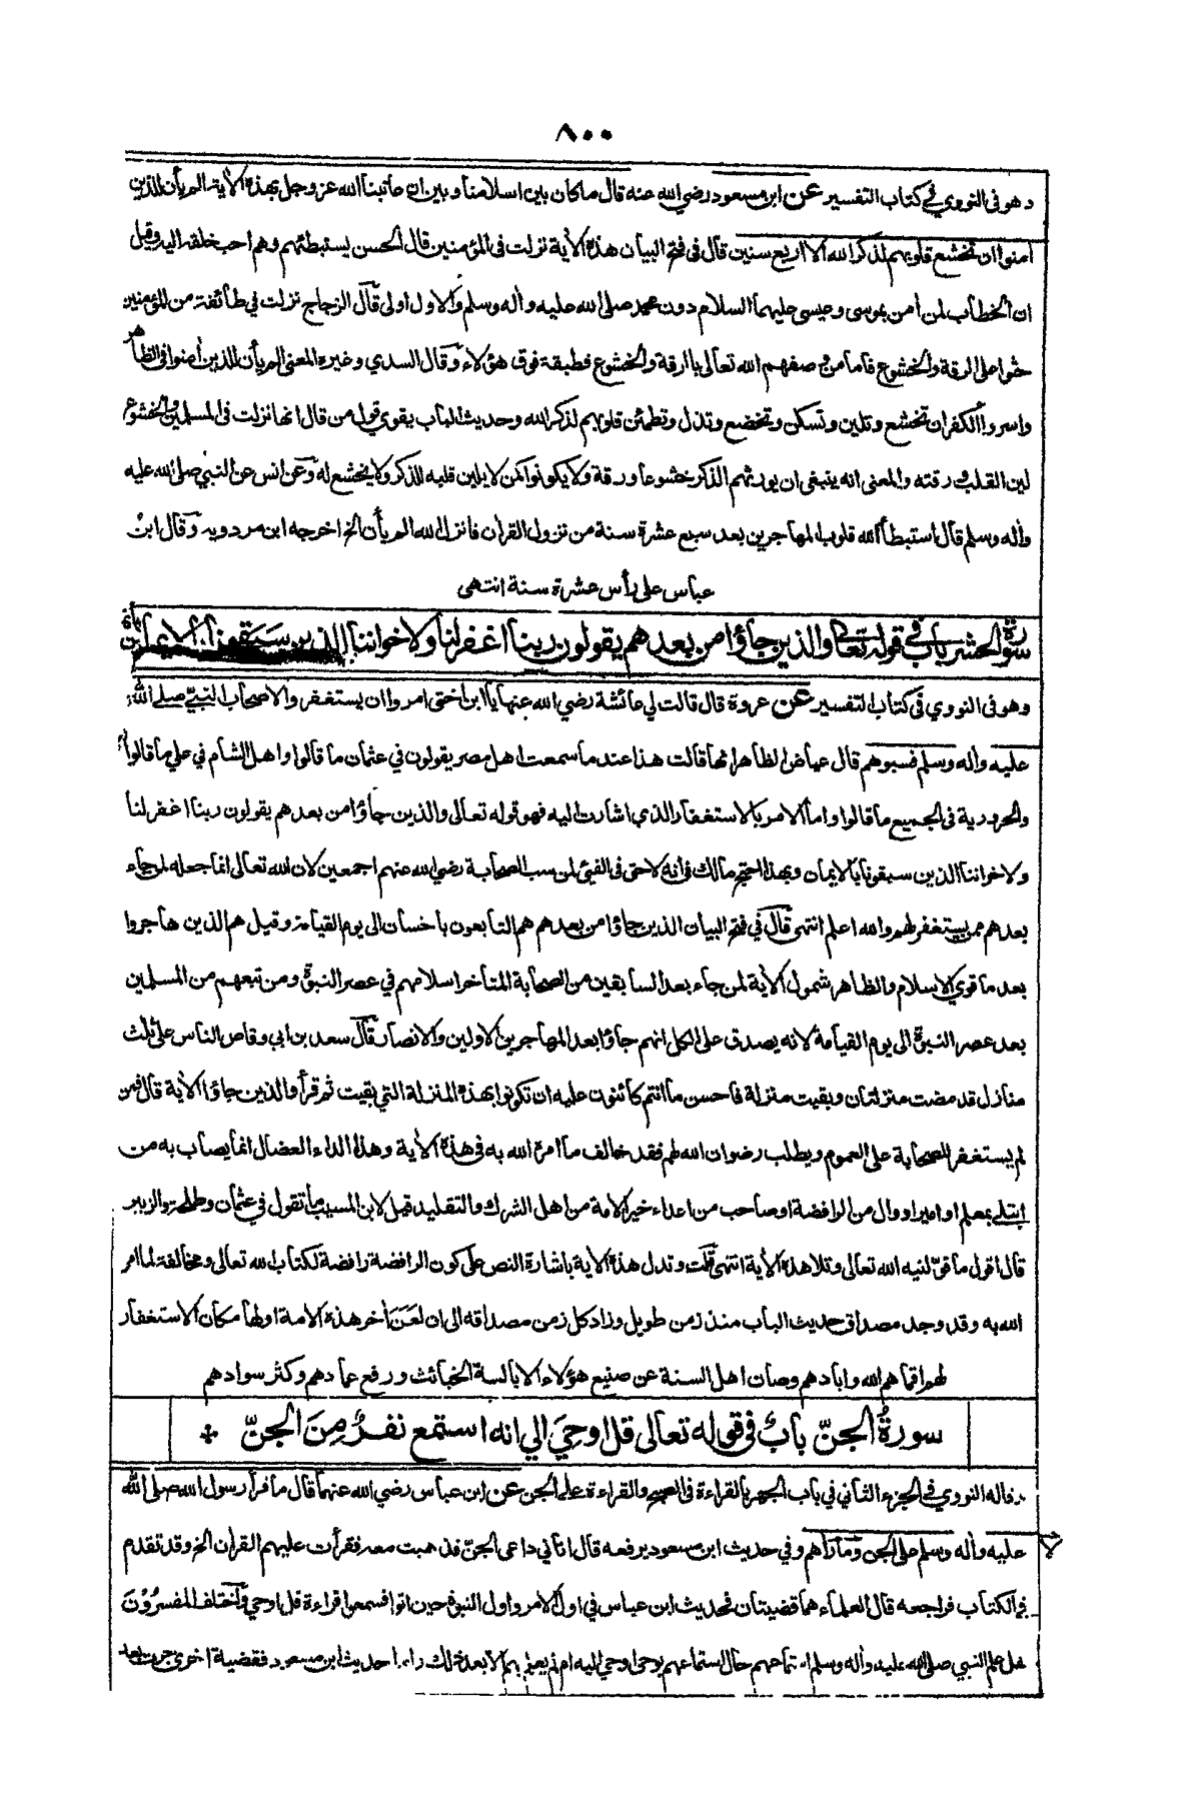 ٨٠٠
وهو في النووي في كتاب التفسير عن ابن مسعود رضي الله عنه قال ما كان بين اسلامنا وبين ان عاتبنا الله عز وجل بهذه الأية الم يأن للذين
امنوا ان تخشع قلوبهم لذكر الله الا اربع سنين قال في فتح البيان هذه الأية نزلت في المؤمنين قال الحسن يستبطئهم وهم احب خلقه اليه وقيل
ان الخطاب لمن أمن بموسى وعيسى عليهما السلام دون محمد صلى الله عليه وأله وسلم والاول اولى قال الزجاج نزلت في طائفة من المؤمنين
حثوا على الرقة والخشوع فأما من وصفهم الله تعالى بالرقة والخشوع فطبقة فوق هؤلاء وقال السدي وغيره المعنى الم يأن للذين أمنوا في الظاهر
واسروا الكفر ان تخشع وتلين وتسكن وتخضع وتذل وتطمئن قلوبهم لذكر الله وحديث الباب يقوي قول من قال انها نزلت في المسلمين والخشوع
لين القلب ورقته والمعنى انه ينبغي ان يورثهم الذكر خشوعا ورقة ولا يكونوا كمن لا يلين قلبه للذكر ولا يخشع له وعن انس عن النبي صلى الله عليه
وأله وسلم قال استبطأ الله قلوب المهاجرين بعد سبع عشرة سنة من نزول القران فانزل الله الم يأن الخ اخرجه ابن مردويه وقال ابن
عباس على رأس عشرة سنة انتهى
سورة الحشر باب في قوله تعالى والذين جاؤا من بعدهم يقولون ربنا اغفر لنا ولاخواننا الذين سبقونا بالايمان
وهو في النووي في كتاب التفسير عن عروة قال قالت لي عائشة رضي الله عنها يا ابن اختي امروا ان يستغفروا لاصحاب النبي صلى الله
عليه وأله وسلم فسبوهم قال عياض الظاهر انها قالت هذا عند ما سمعت اهل مصر يقولون في عثمان ما قالوا واهل الشام في علي ما قالوا
والحرورية في الجميع ما قالوا واما الامر بالاستغفار الذي اشارت اليه فهو قوله تعالى والذين جاؤا من بعدهم يقولون ربنا اغفر لنا
ولاخواننا الذين سبقونا بالايمان وبهذا احتج مالك في انه لا حق في الفيئ لمن سب الصحابة رضي الله عنهم اجمعين لان الله تعالى انما جعله لمن جاء
بعدهم ممن يستغفر لهم والله اعلم انتهى قال في فتح البيان الذين جاؤا من بعدهم هم التابعون باحسان الى يوم القيامة وقيل هم الذين هاجروا
بعد ما قوي الاسلام والظاهر شمول الأية لمن جاء بعد السابقين من الصحابة المتأخر اسلامهم في عصر النبوة ومن تبعهم من المسلمين
بعد عصر النبوة الى يوم القيامة لانه يصدق على الكل انهم جاؤا بعد المهاجرين الاولين والانصار قال سعد بن ابي وقاص الناس على ثلث
منازل قد مضت منزلتان وبقيت منزلة فأحسن ما انتم كائنون عليه ان تكونوا بهذه المنزلة التي بقيت ثم قرأ والذين جاؤا الأية قال فمن
لم يستغفر للصحابة على العموم ويطلب رضوان الله لهم فقد خالف ما امره الله به في هذه الأية وهذا الداء العضال انما يصاب به من
ابتلي بمعلم او امير او وال من الرافضة او صاحب من اعداء خير الامة من اهل الشرك والتقليد قيل لابن المسيب ما تقول في عثمان وطلحة والزبير
قال اقول ما قولنيه الله تعالى وتلا هذه الأية انتهى قلت وتدل هذه الأية باشارة النص على كون الرافضة رافضة لكتاب الله تعالى ومخالفة لما امر
الله به وقد وجد مصداق حديث الباب منذ زمن طويل وزاد كل زمن مصداقه الى ان لعن أخر هذه الامة اولها مكان الاستغفار
لهم اقماهم الله وابادهم وصان اهل السنة عن صنيع هؤلاء الابالسة الخبائث ورفع عمادهم وكثر سوادهم
سورة الجن باب في قوله تعالى قل اوحي الي انه استمع نفر من الجن
وقاله النووي في الجزء الثاني في باب الجهر بالقراءة في الصبح والقراءة على الجن عن ابن عباس رضي الله عنهما قال ما قرأ رسول الله صلى الله
عليه وأله وسلم على الجن وما رأهم وفي حديث ابن مسعود يرفعه قال اتاني داعي الجن فذهبت معه فقرأت عليهم القران الخ وقد تقدم
في الكتاب فراجعه قال العلماء هما قضيتان فحديث ابن عباس في اول الامر واول النبوة حين اتوا فسمعوا قراءة قل اوحي واختلف المفسرون
هل علم النبي صلى الله عليه وأله وسلم استماعهم حال استماعهم بوحي اوحي اليه ام لم يعلم بهم الا بعد ذلك واما حديث ابن مسعود فقضية اخرى جرت بعد